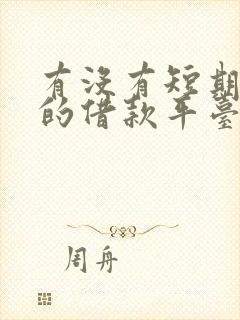 有没有短期
的借款平臺
周舟